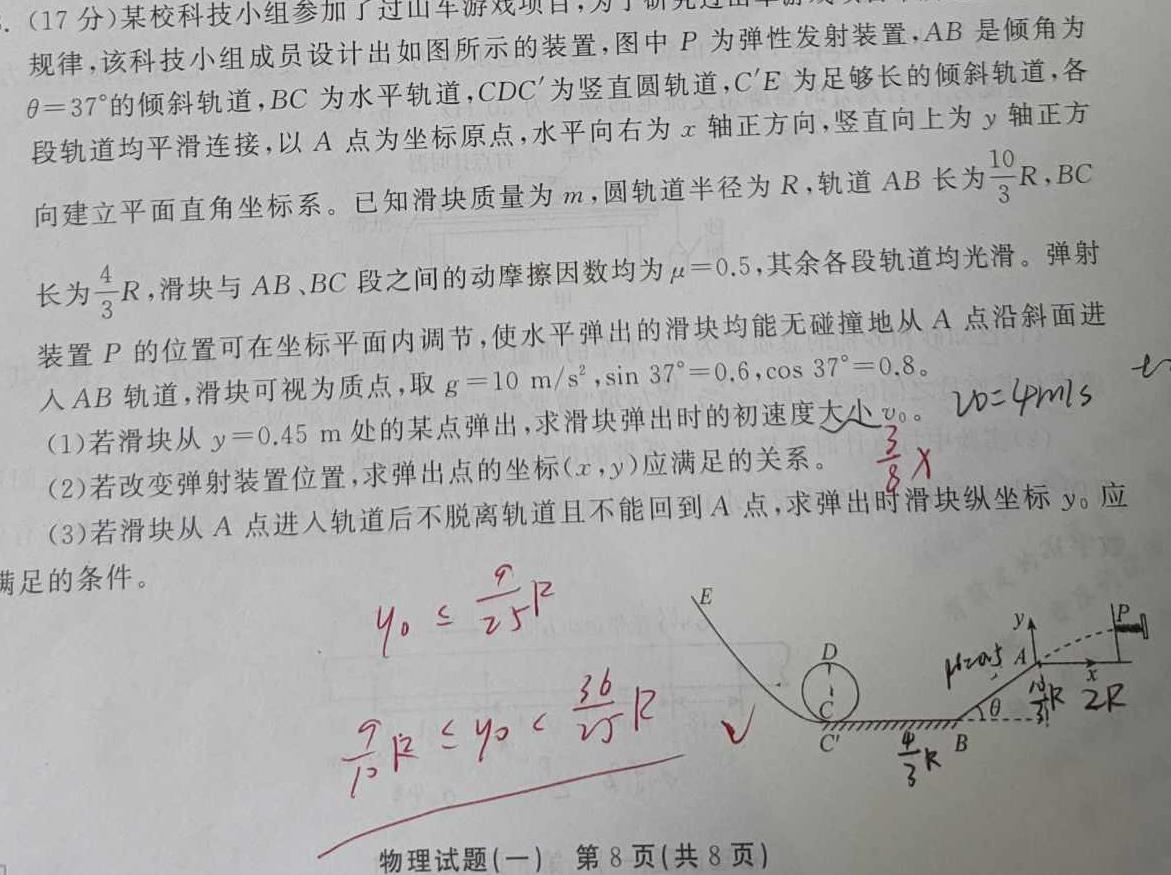 (17分)某校科技小组参加了过山车游戏项目,为了研究过山车
规律,该科技小组成员设计出如图所示的装置,图中 P 为弹性发射装置,AB 是倾角为
θ=37°的倾斜轨道,BC 为水平轨道,CDC′为竖直圆轨道,C′E 为足够长的倾斜轨道,各
段轨道均平滑连接,以 A 点为坐标原点,水平向右为 x 轴正方向,竖直向上为 y 轴正方
向建立平面直角坐标系。已知滑块质量为 m,圆轨道半径为 R,轨道 AB 长为10/3R,BC
长为4/3R,滑块与 AB、BC 段之间的动摩擦因数均为μ=0.5,其余各段轨道均光滑。弹射
装置 P 的位置可在坐标平面内调节,使水平弹出的滑块均能无碰撞地从 A 点沿斜面进
入 AB 轨道,滑块可视为质点,取 g=10 m/s²,sin 37°=0.6,cos 37°=0.8。
(1)若滑块从 y=0.45 m 处的某点弹出,求滑块弹出时的初速度大小 v₀。 v0=4m/s
(2)若改变弹射装置位置,求弹出点的坐标(x,y)应满足的关系。 3/8 x
(3)若滑块从 A 点进入轨道后不脱离轨道且不能回到 A 点,求弹出时滑块纵坐标 y₀ 应
满足的条件。
y₀ ≤ 9/25 R
9/10 R ≤ y₀ < 36/25 R
E
D
C
C′
4/3 R
B
θ
μ=0.5
A
y
x
P
10/3 R
2R
物理试题(一) 第 8 页(共 8 页)